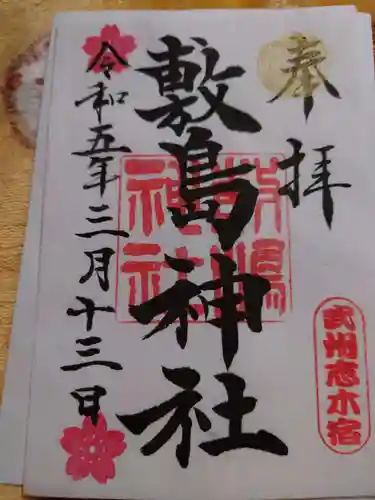 奉拝
武州志木宿
敷島神社
敷嶋
神社
令和五年三月十三日